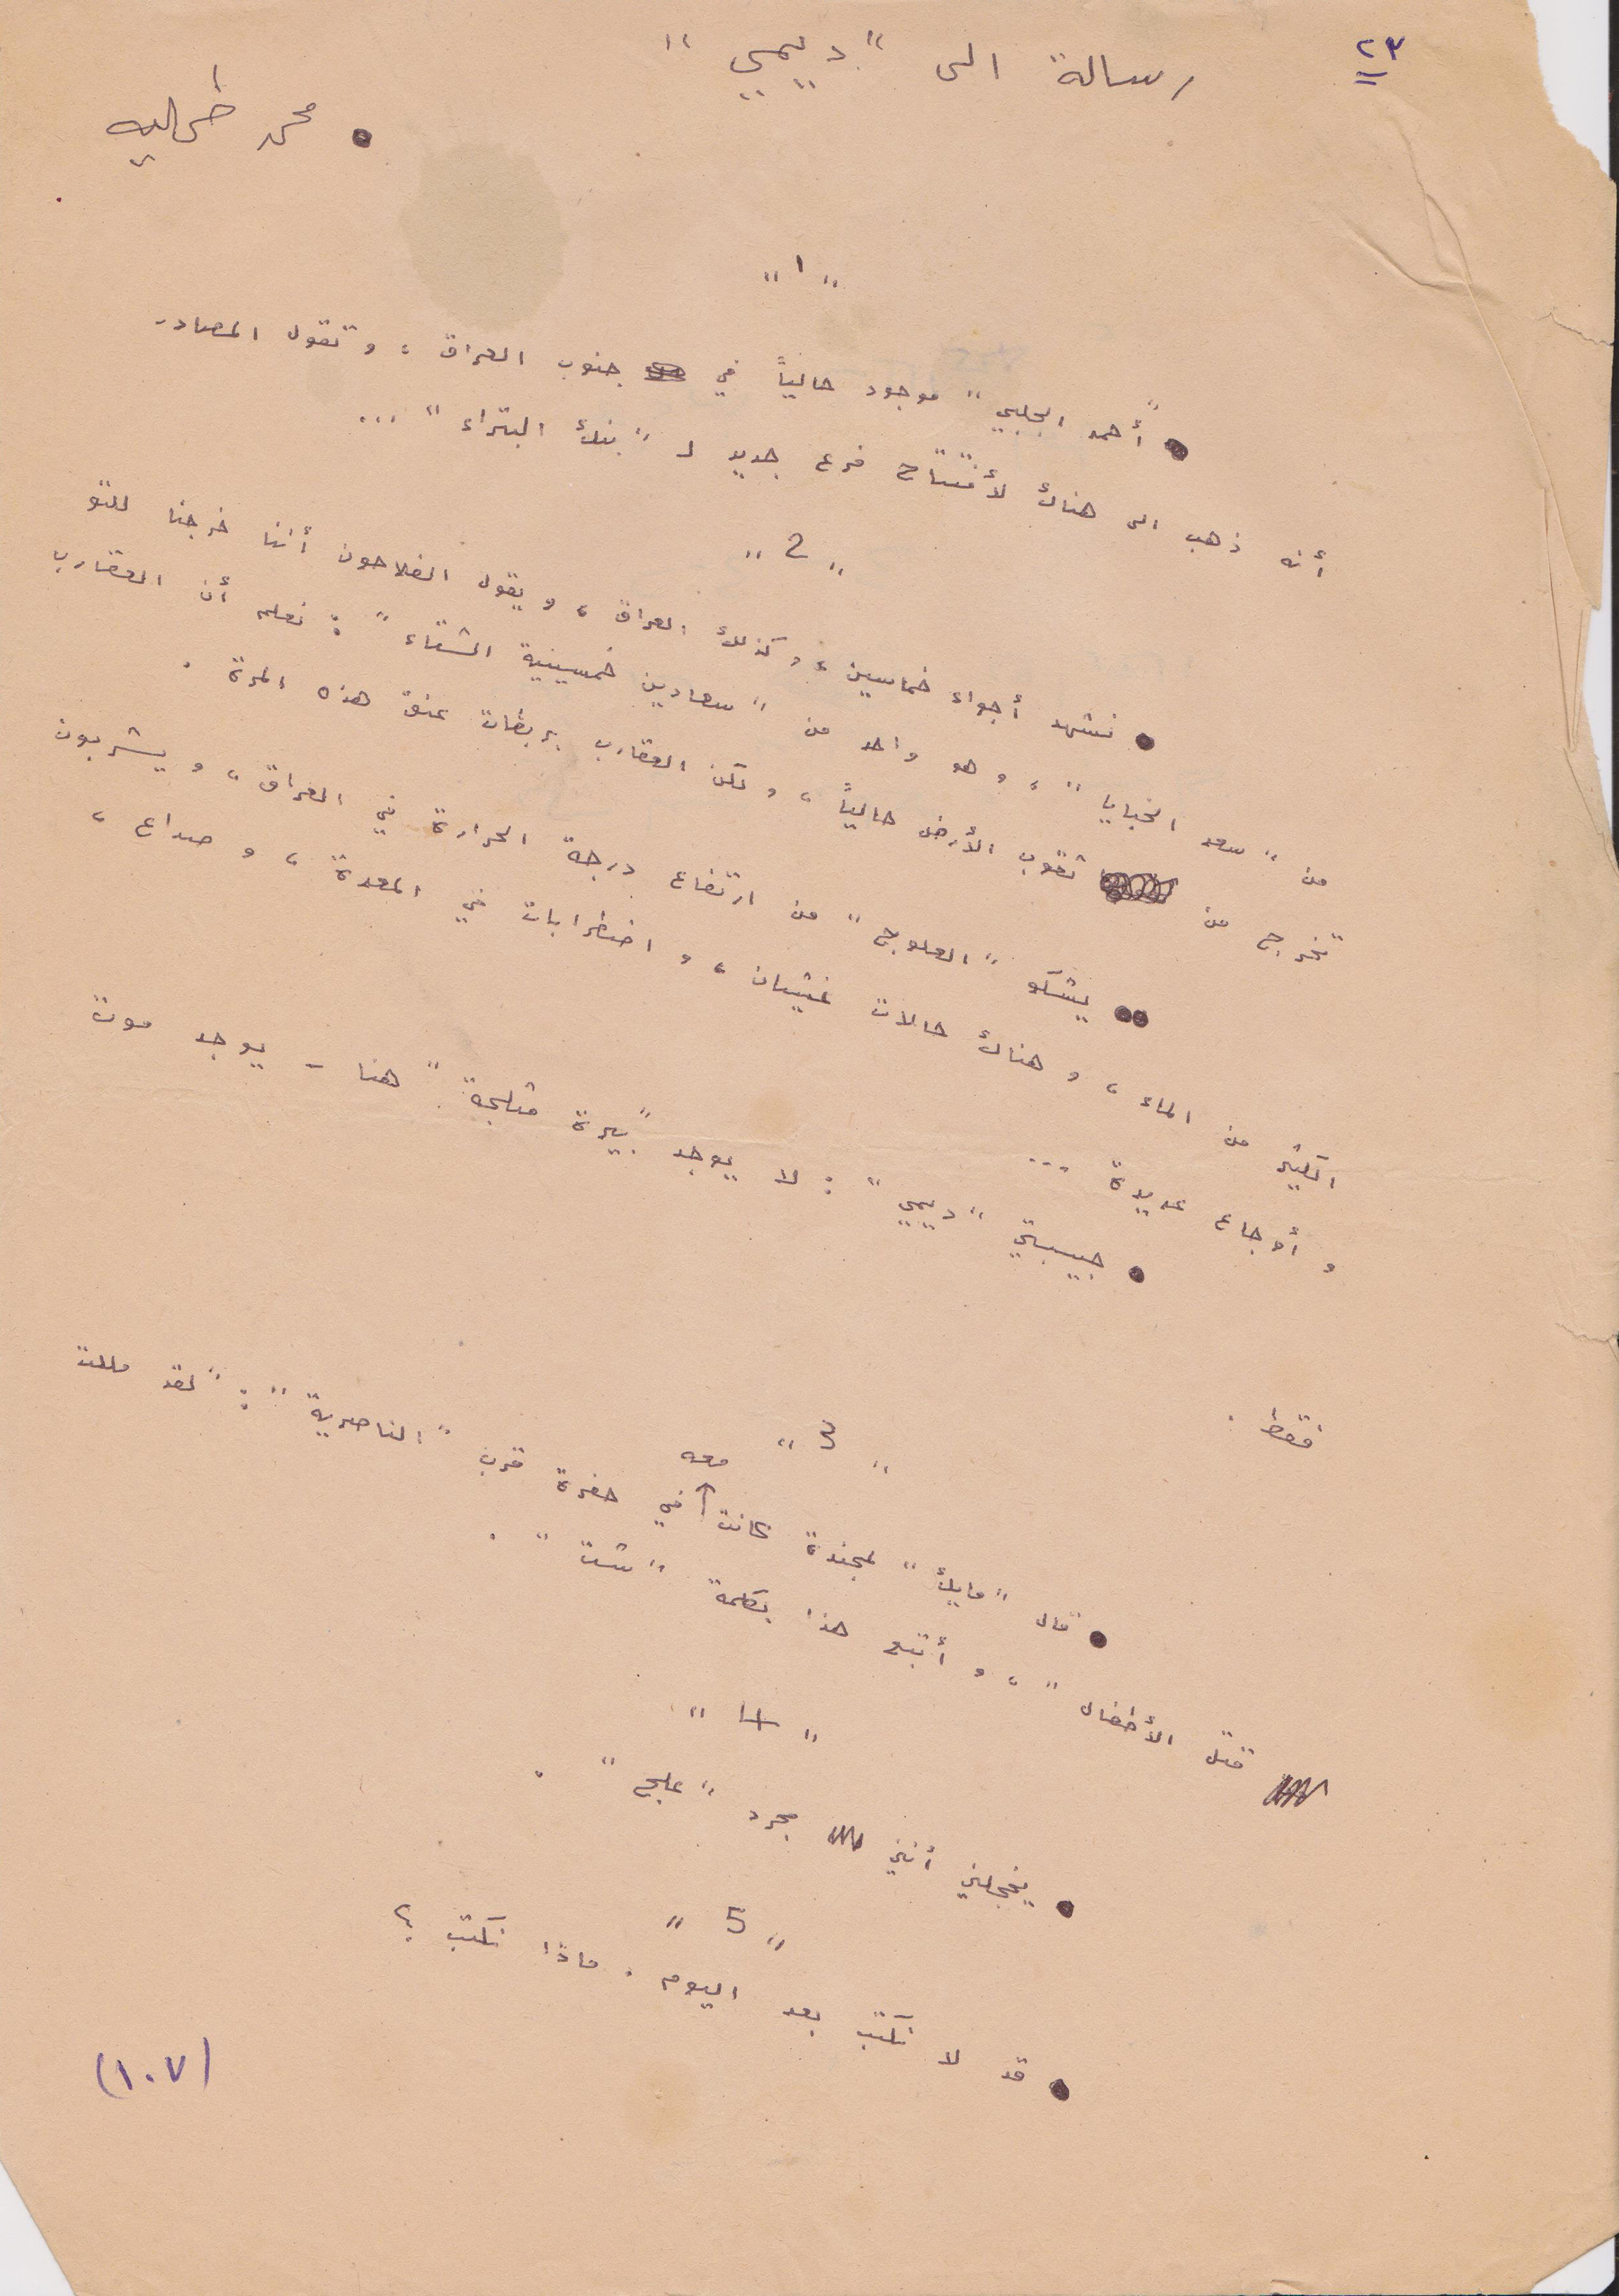 ٢٣
رسالة الى "ديمي"
• محمد طمليه
"١"
• "أحمد الجلبي" موجود حالياً في جنوب العراق، وتقول المصادر
أنه ذهب الى هناك لأفتتاح فرع جديد لـ "بنك البتراء"...
"2"
• نشهد أجواء خماسين، وكذلك العراق، ويقول الفلاحون أننا خرجنا للتو
من "سعد الخبايا"، وهو واحد من "سعادين خمسينية الشتاء": نعلم أن العقارب
تخرج من ثقوب الأرض حالياً، ولكن العقارب بربطات عنق هذه المرة.
•• يشكو "العلوج" من ارتفاع درجة الحرارة في العراق، ويشربون
الكثير من الماء، وهناك حالات غثيان، واضطرابات في المعدة، وصداع،
وأوجاع عديدة...
• حبيبتي "ديمي": لا يوجد "بيرة مثلجة" هنا - يوجد موت
فقط.
"3"
• قال "مايك" لمجندة كانت معه في حفرة قرب "الناصرية": "لقد مللت
قتل الأطفال"، وأتبع هذا بكلمة "شت".
"4"
• يخجلني أنني مجرد "علج".
"5"
• قد لا نكتب بعد اليوم. ماذا نكتب؟
(١٠٧)